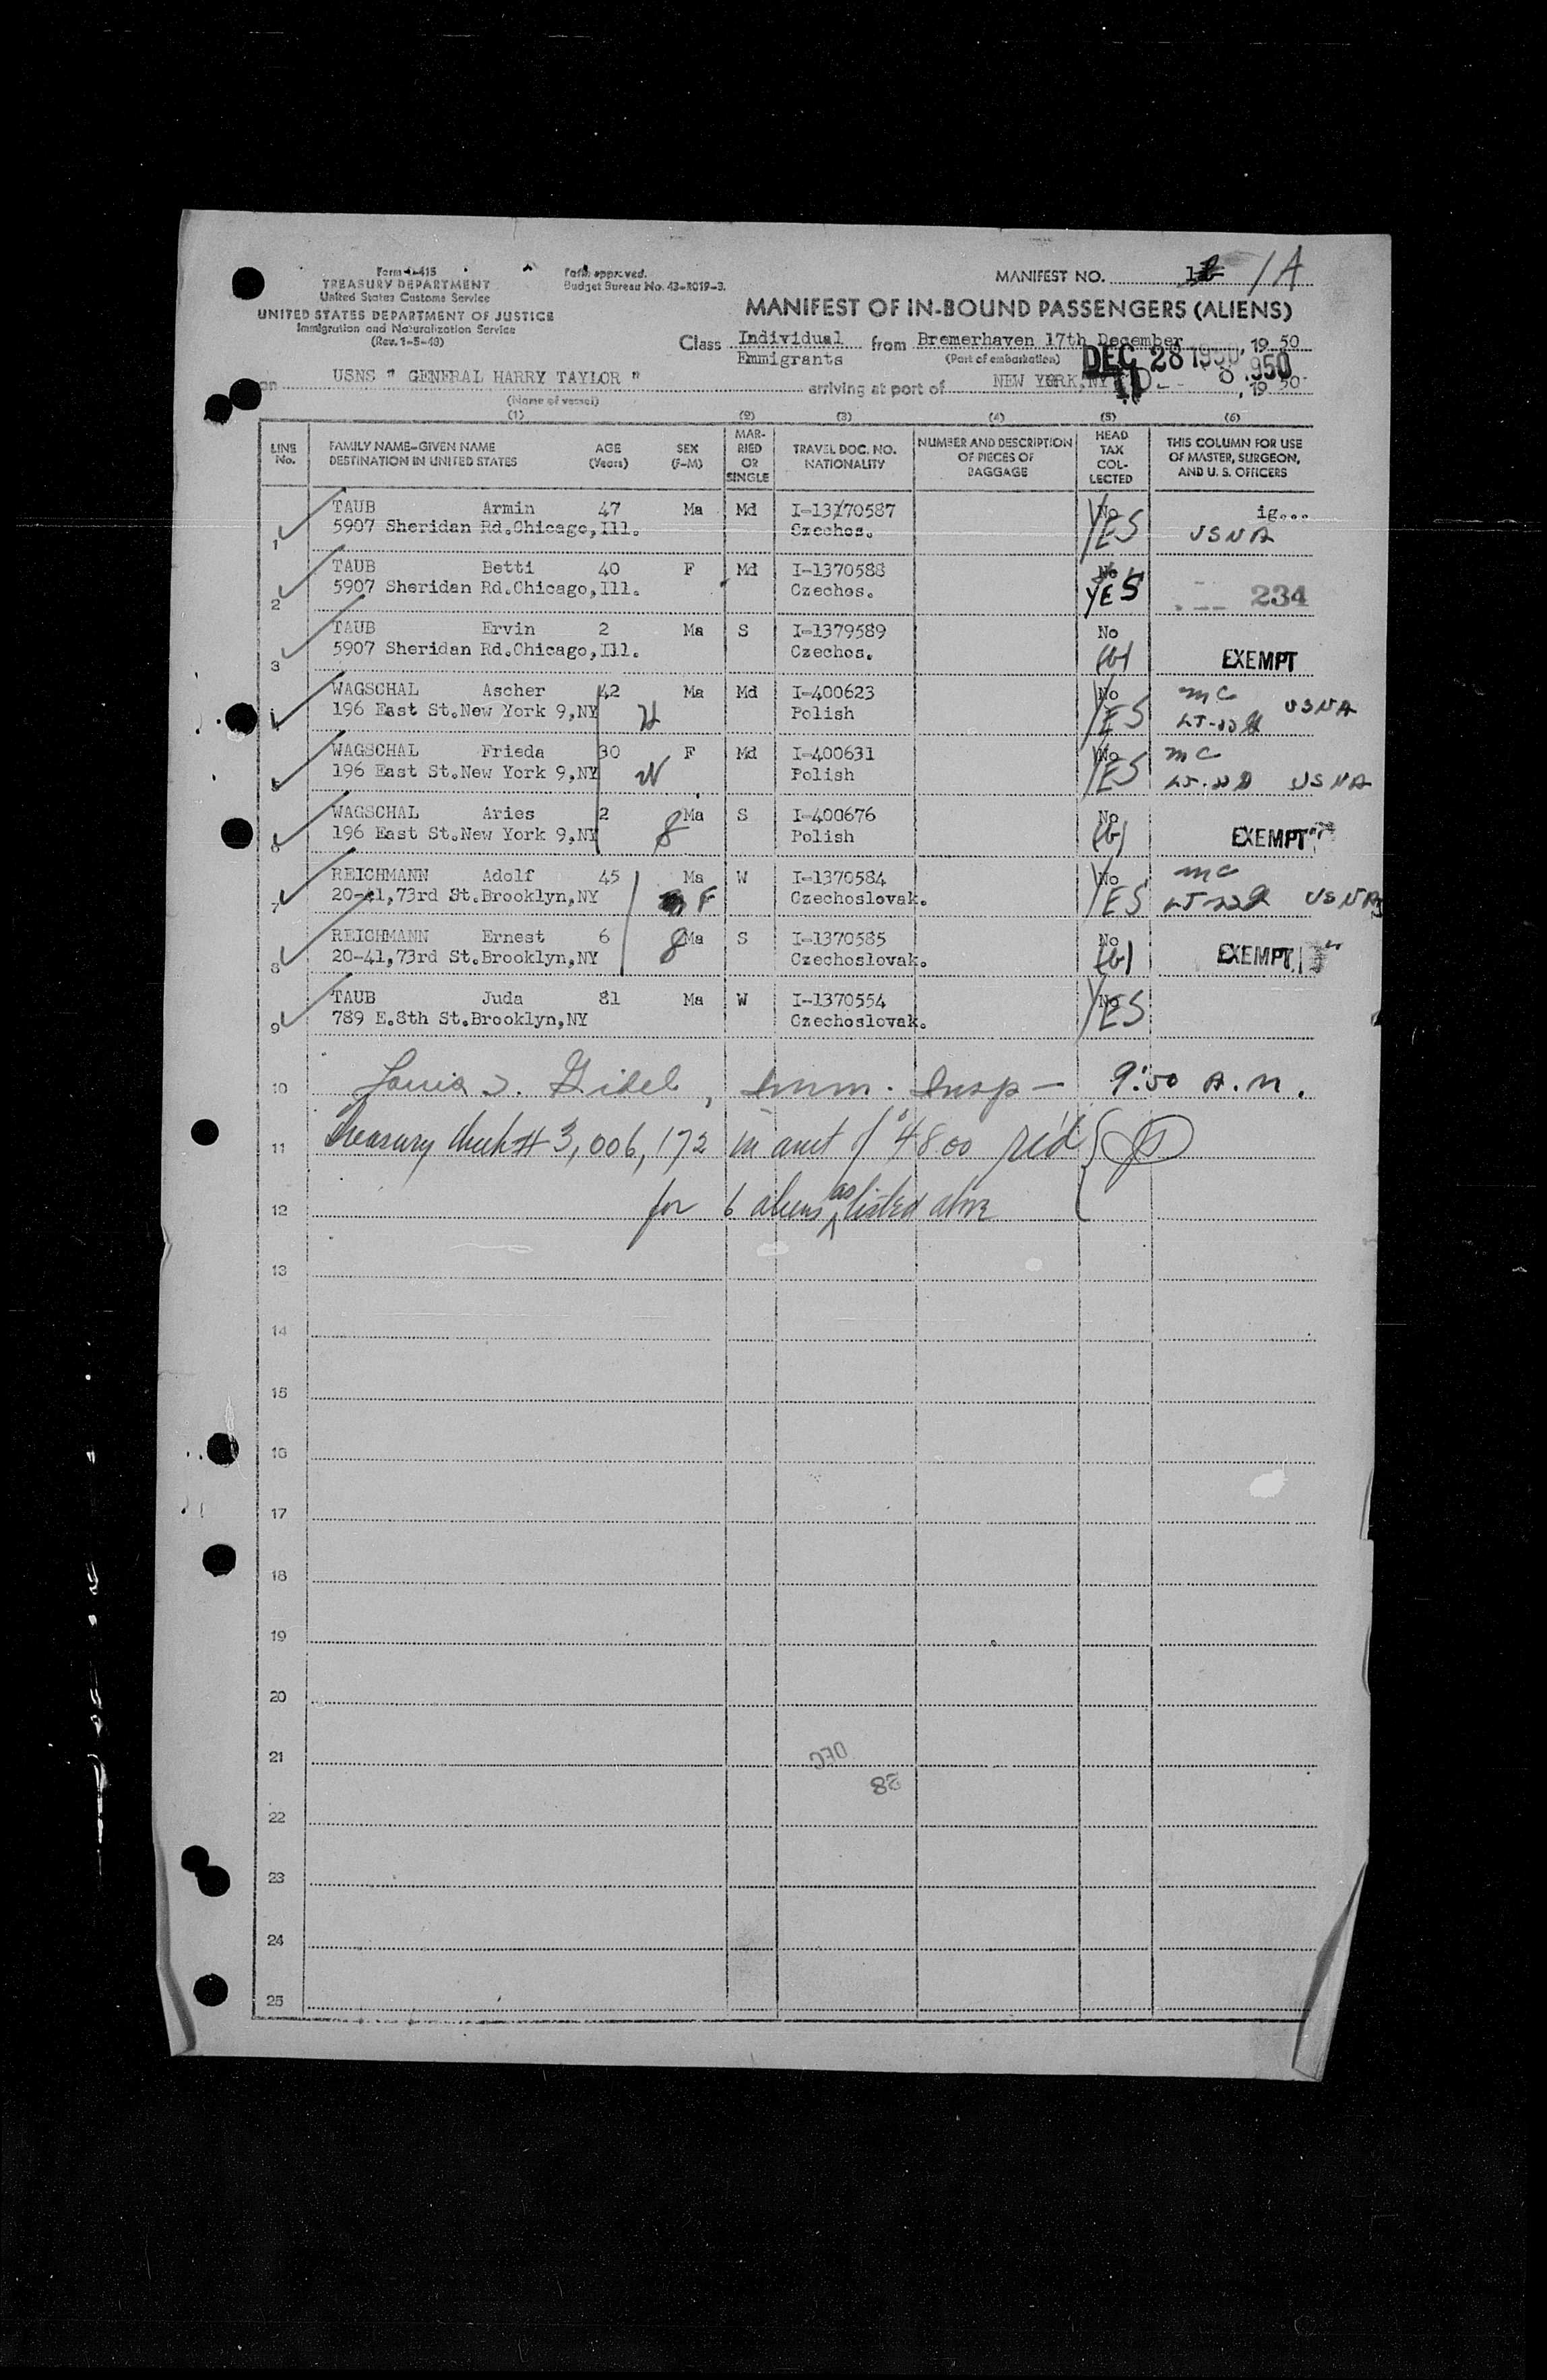 Form I-415
TREASURY DEPARTMENT
United States Customs Service
UNITED STATES DEPARTMENT OF JUSTICE
Immigration and Naturalization Service
(Rev. 1-5-48)
Form approved.
Budget Bureau No. 43-R019-3.
MANIFEST NO. 1A
MANIFEST OF IN-BOUND PASSENGERS (ALIENS)
Class Individual from Bremerhaven 17th December, 19 50
Emmigrants (Port of embarkation) DEC 28 1950
on USNS " GENERAL HARRY TAYLOR " arriving at port of NEW YORK, NY , 19 50
(Name of vessel)
(1) (2) (3) (4) (5) (6)
LINE No. FAMILY NAME-GIVEN NAME DESTINATION IN UNITED STATES AGE (Years) SEX (F-M) MARRIED OR SINGLE TRAVEL DOC. NO. NATIONALITY NUMBER AND DESCRIPTION OF PIECES OF BAGGAGE HEAD TAX COLLECTED THIS COLUMN FOR USE OF MASTER, SURGEON, AND U. S. OFFICERS
TAUB Armin 47 Ma Md I-13170587 No ig...
1 5907 Sheridan Rd.Chicago,Ill. Czechos. YES USNA
TAUB Betti 40 F Md I-1370588 No
2 5907 Sheridan Rd.Chicago,Ill. Czechos. YES 234
TAUB Ervin 2 Ma S I-1379589 No
3 5907 Sheridan Rd.Chicago,Ill. Czechos. (b) EXEMPT
WAGSCHAL Ascher 42 Ma Md I-400623 No mc
4 196 East St.New York 9,NY H Polish YES USNA
WAGSCHAL Frieda 30 F Md I-400631 No mc
5 196 East St.New York 9,NY W Polish YES USNA
WAGSCHAL Aries 2 Ma S I-400676 No
6 196 East St.New York 9,NY Polish (b) EXEMPT
REICHMANN Adolf 45 Ma W I-1370584 No mc
7 20-41,73rd St.Brooklyn,NY F Czechoslovak. YES USNA
REICHMANN Ernest 6 Ma S I-1370585 No
8 20-41,73rd St.Brooklyn,NY Czechoslovak. (b) EXEMPT
TAUB Juda 81 Ma W I-1370554 No
9 789 E.8th St.Brooklyn,NY Czechoslovak. YES
10 Louis Imm. Insp - 9:50 A.M.
11 Treasury check # 3,006,172 in amt of $48.00 rec'd
12 for 6 aliens as listed above
13
14
15
16
17
18
19
20
21 DEC
28
22
23
24
25